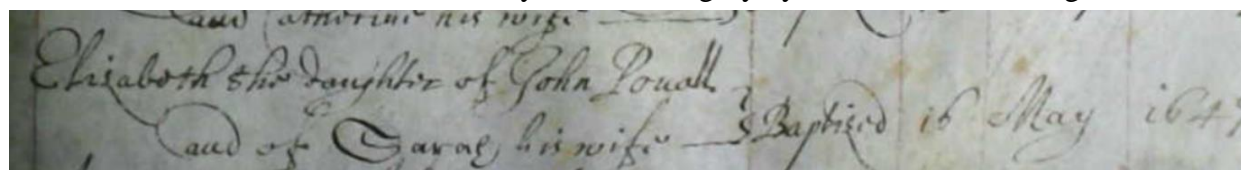 and Catherine his wife
Elizabeth the daughter of John Pouall
and of Sarah his wife Baptized 16 May 1647